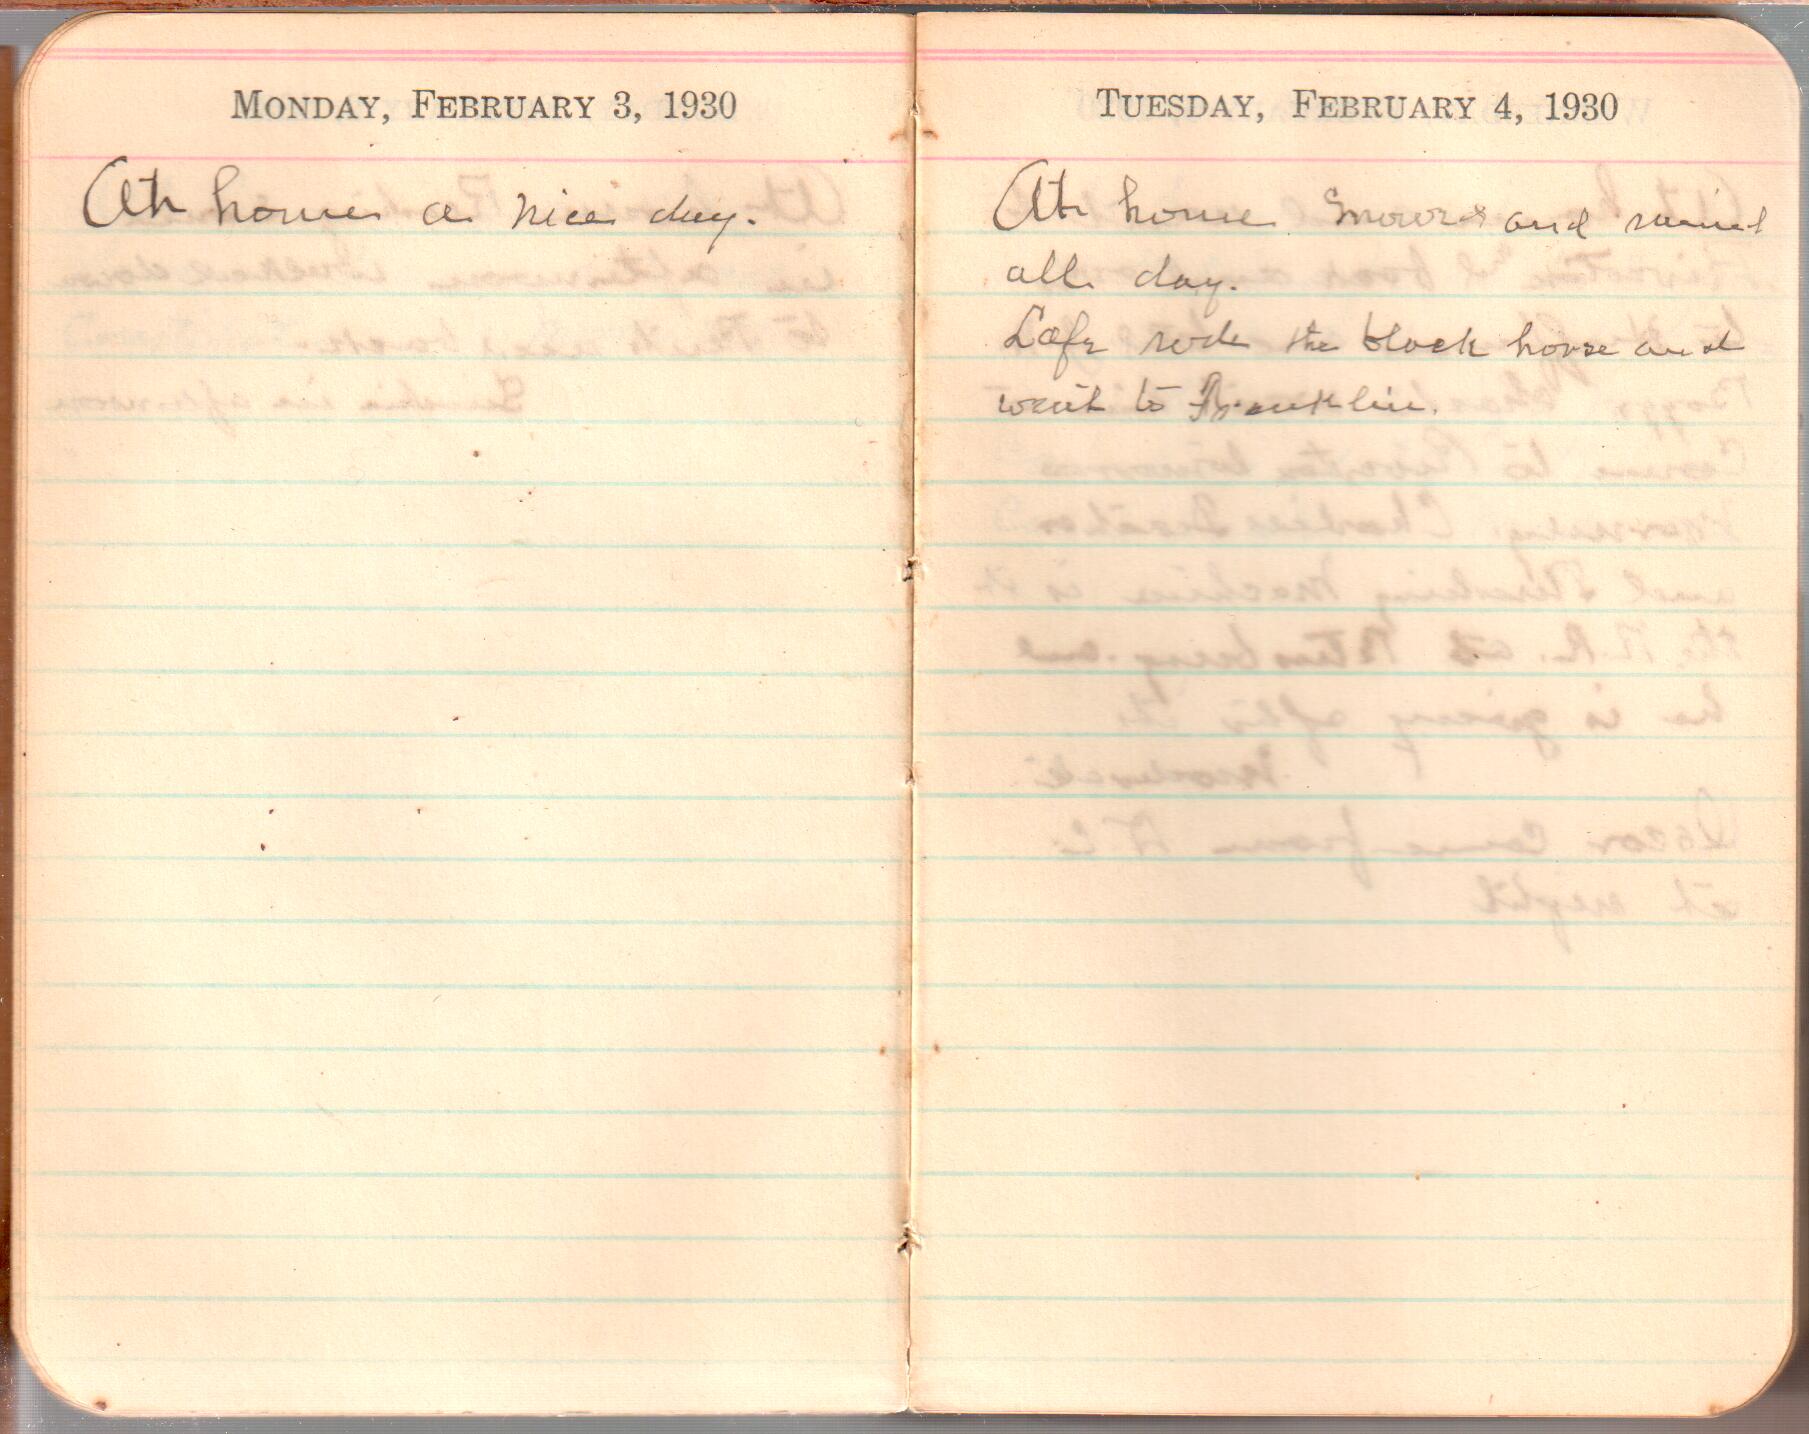 MONDAY, FEBRUARY 3, 1930
At home a nice day.
TUESDAY, FEBRUARY 4, 1930
At home Snowed and rained
all day.
Lafe rode the black horse and
went to Franklin.